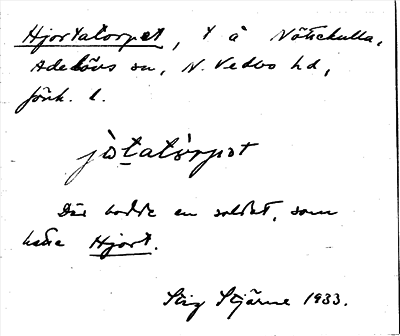 Hjortatorpet, t å Nötiekulla,
Adelövs sn, N. Vedbo hd,
Jönk. l.
jòtatòrpət
Där bodde en soldat, som
hette Hjort.
Stig Stjärne 1933.